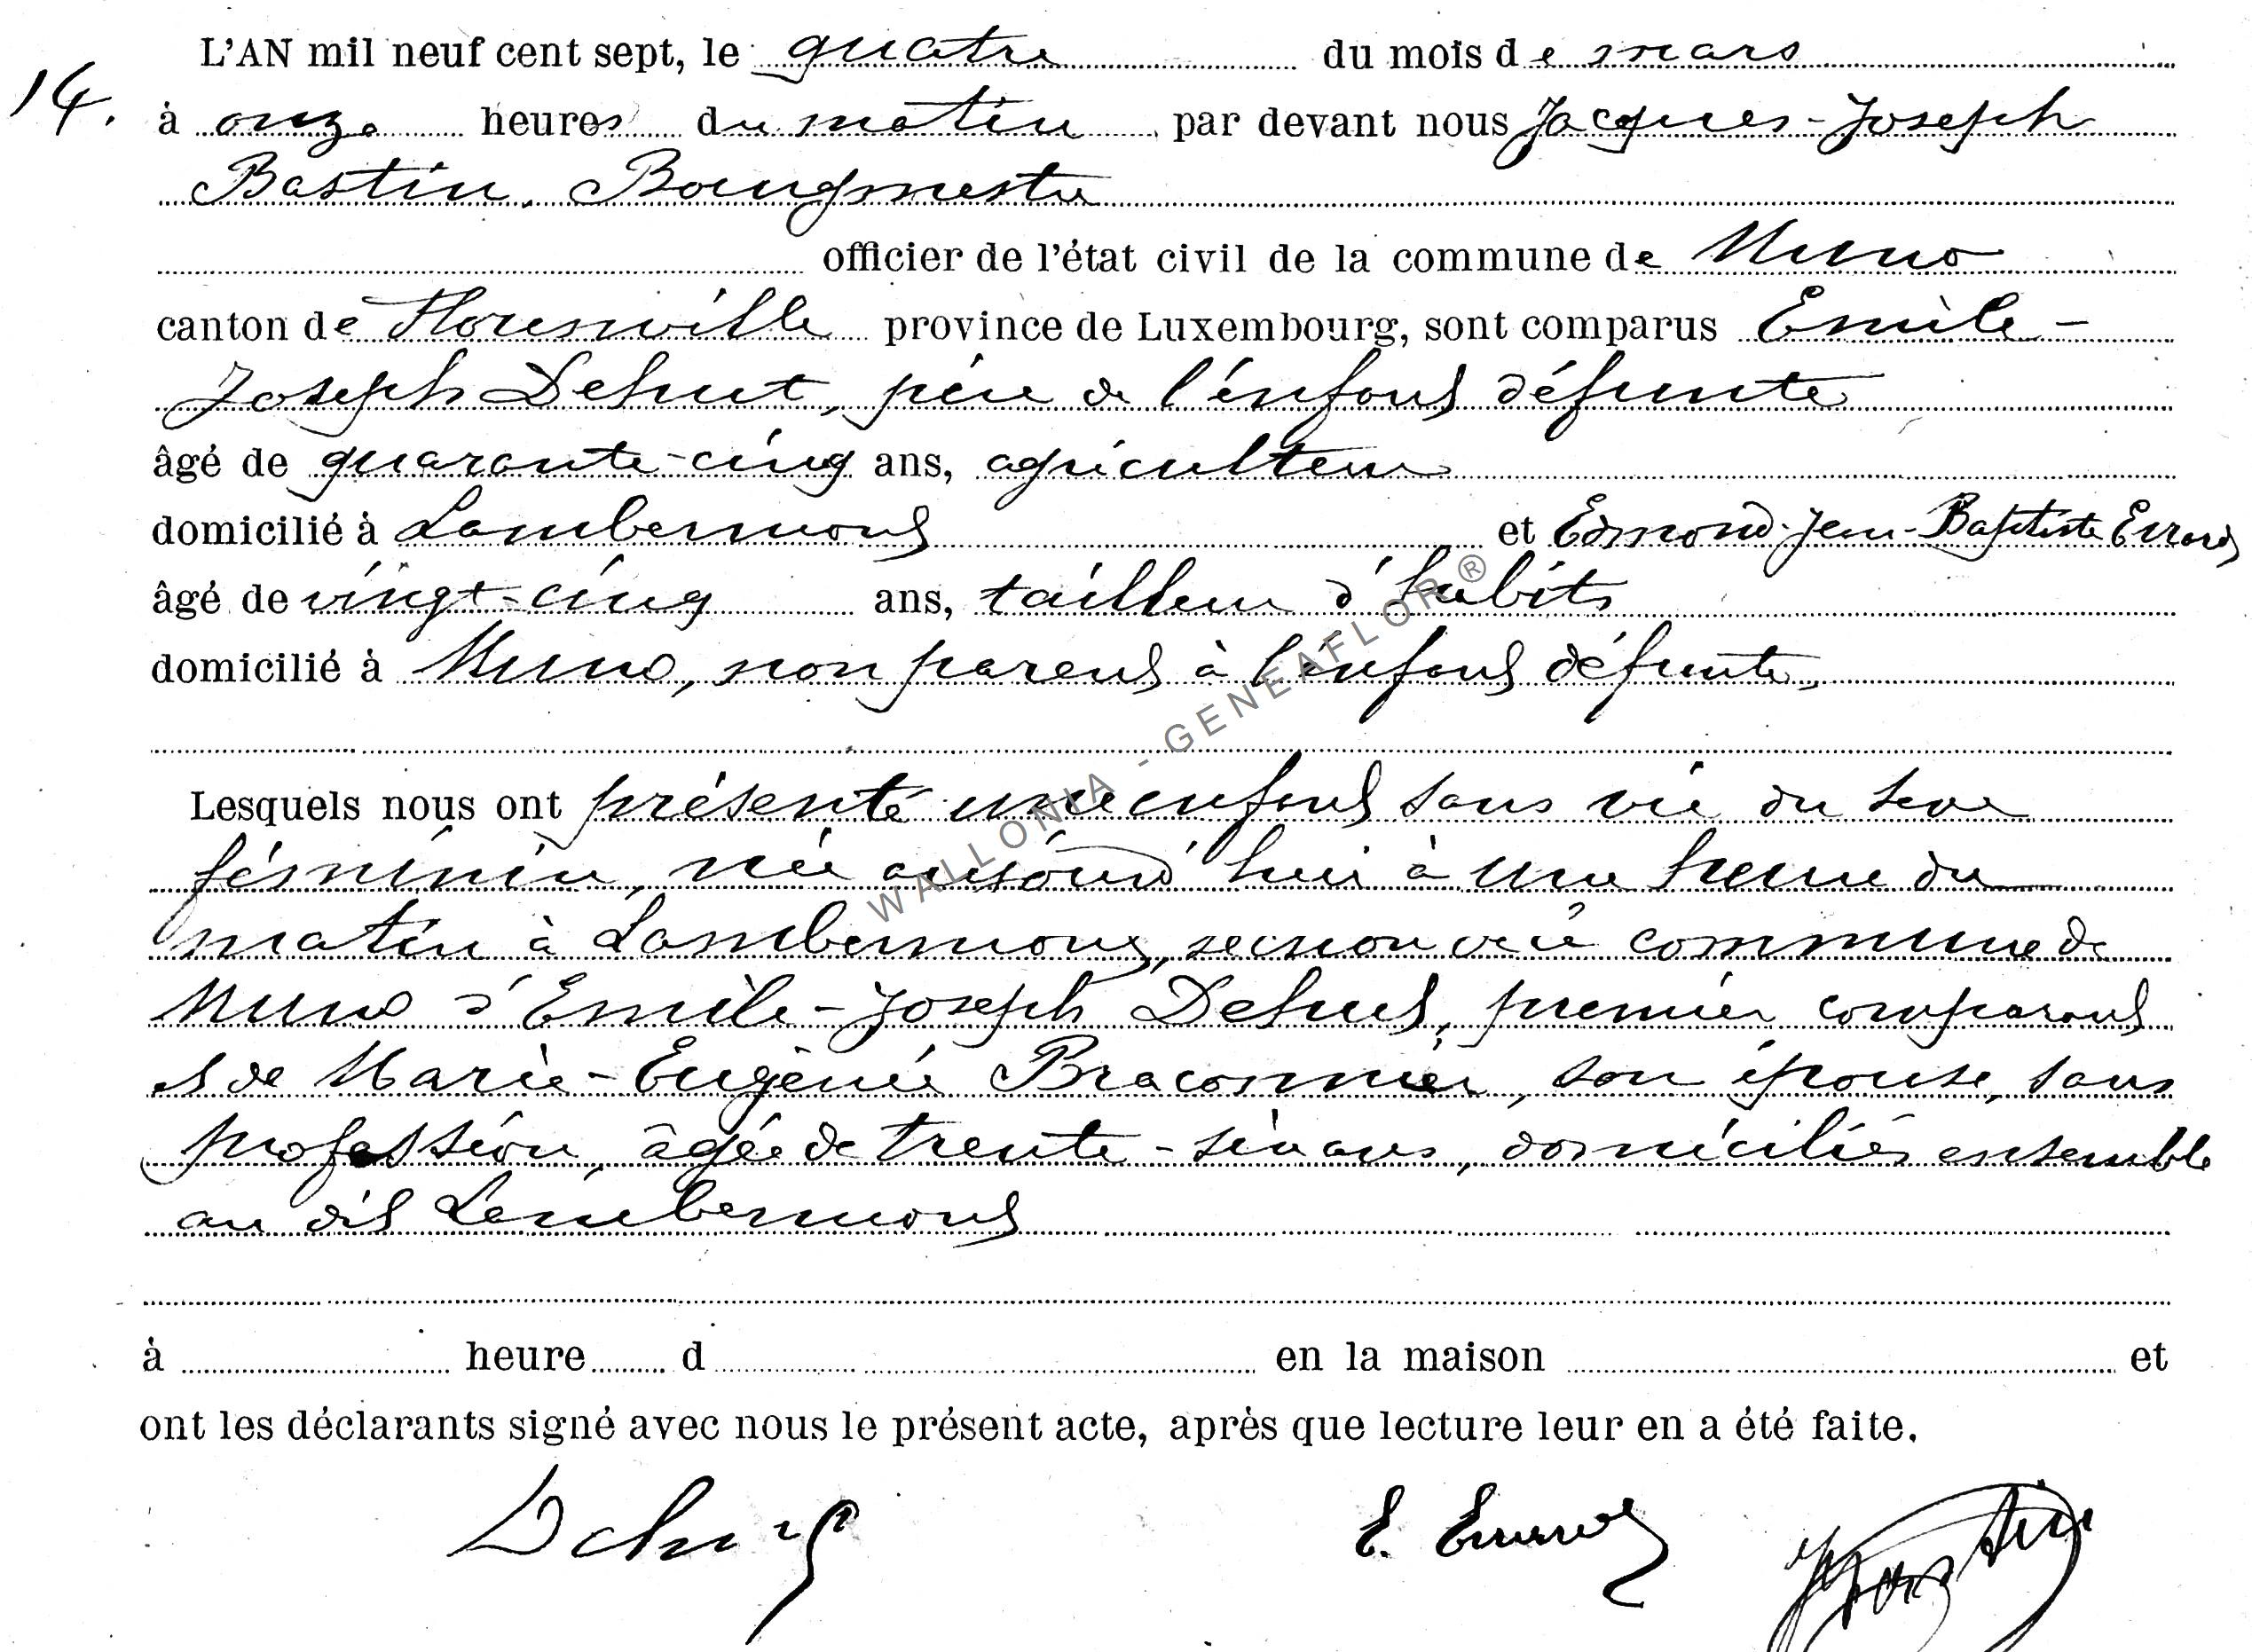 L'AN mil neuf cent sept, le quatre du mois de mars
14. à onze heures du matin par devant nous Jacques-Joseph
Bastin, Bourgmestre
officier de l'état civil de la commune de Muno
canton de Florenville province de Luxembourg, sont comparus Emile-
Joseph Dehut, père de l'enfant défunte
âgé de quarante-cinq ans, agriculteur
domicilié à Lambermont et Edmond-Jean-Baptiste Errard
âgé de vingt-cinq ans, tailleur d'habits
domicilié à Muno, non parent à l'enfant défunte,
Lesquels nous ont présenté une enfant sans vie du sexe
féminin, née aujourd'hui à une heure du
matin à Lambermont, section de la commune de
Muno d'Emile-Joseph Dehut, premier comparant
et de Marie-Eugénie Braconnier, son épouse, sans
profession, âgée de trente-six ans, domiciliés ensemble
au dit Lambermont
à heure d en la maison et
ont les déclarants signé avec nous le présent acte, après que lecture leur en a été faite.
Dehut E. Errard JBastin
WALLONIA - GENEAFLOR®